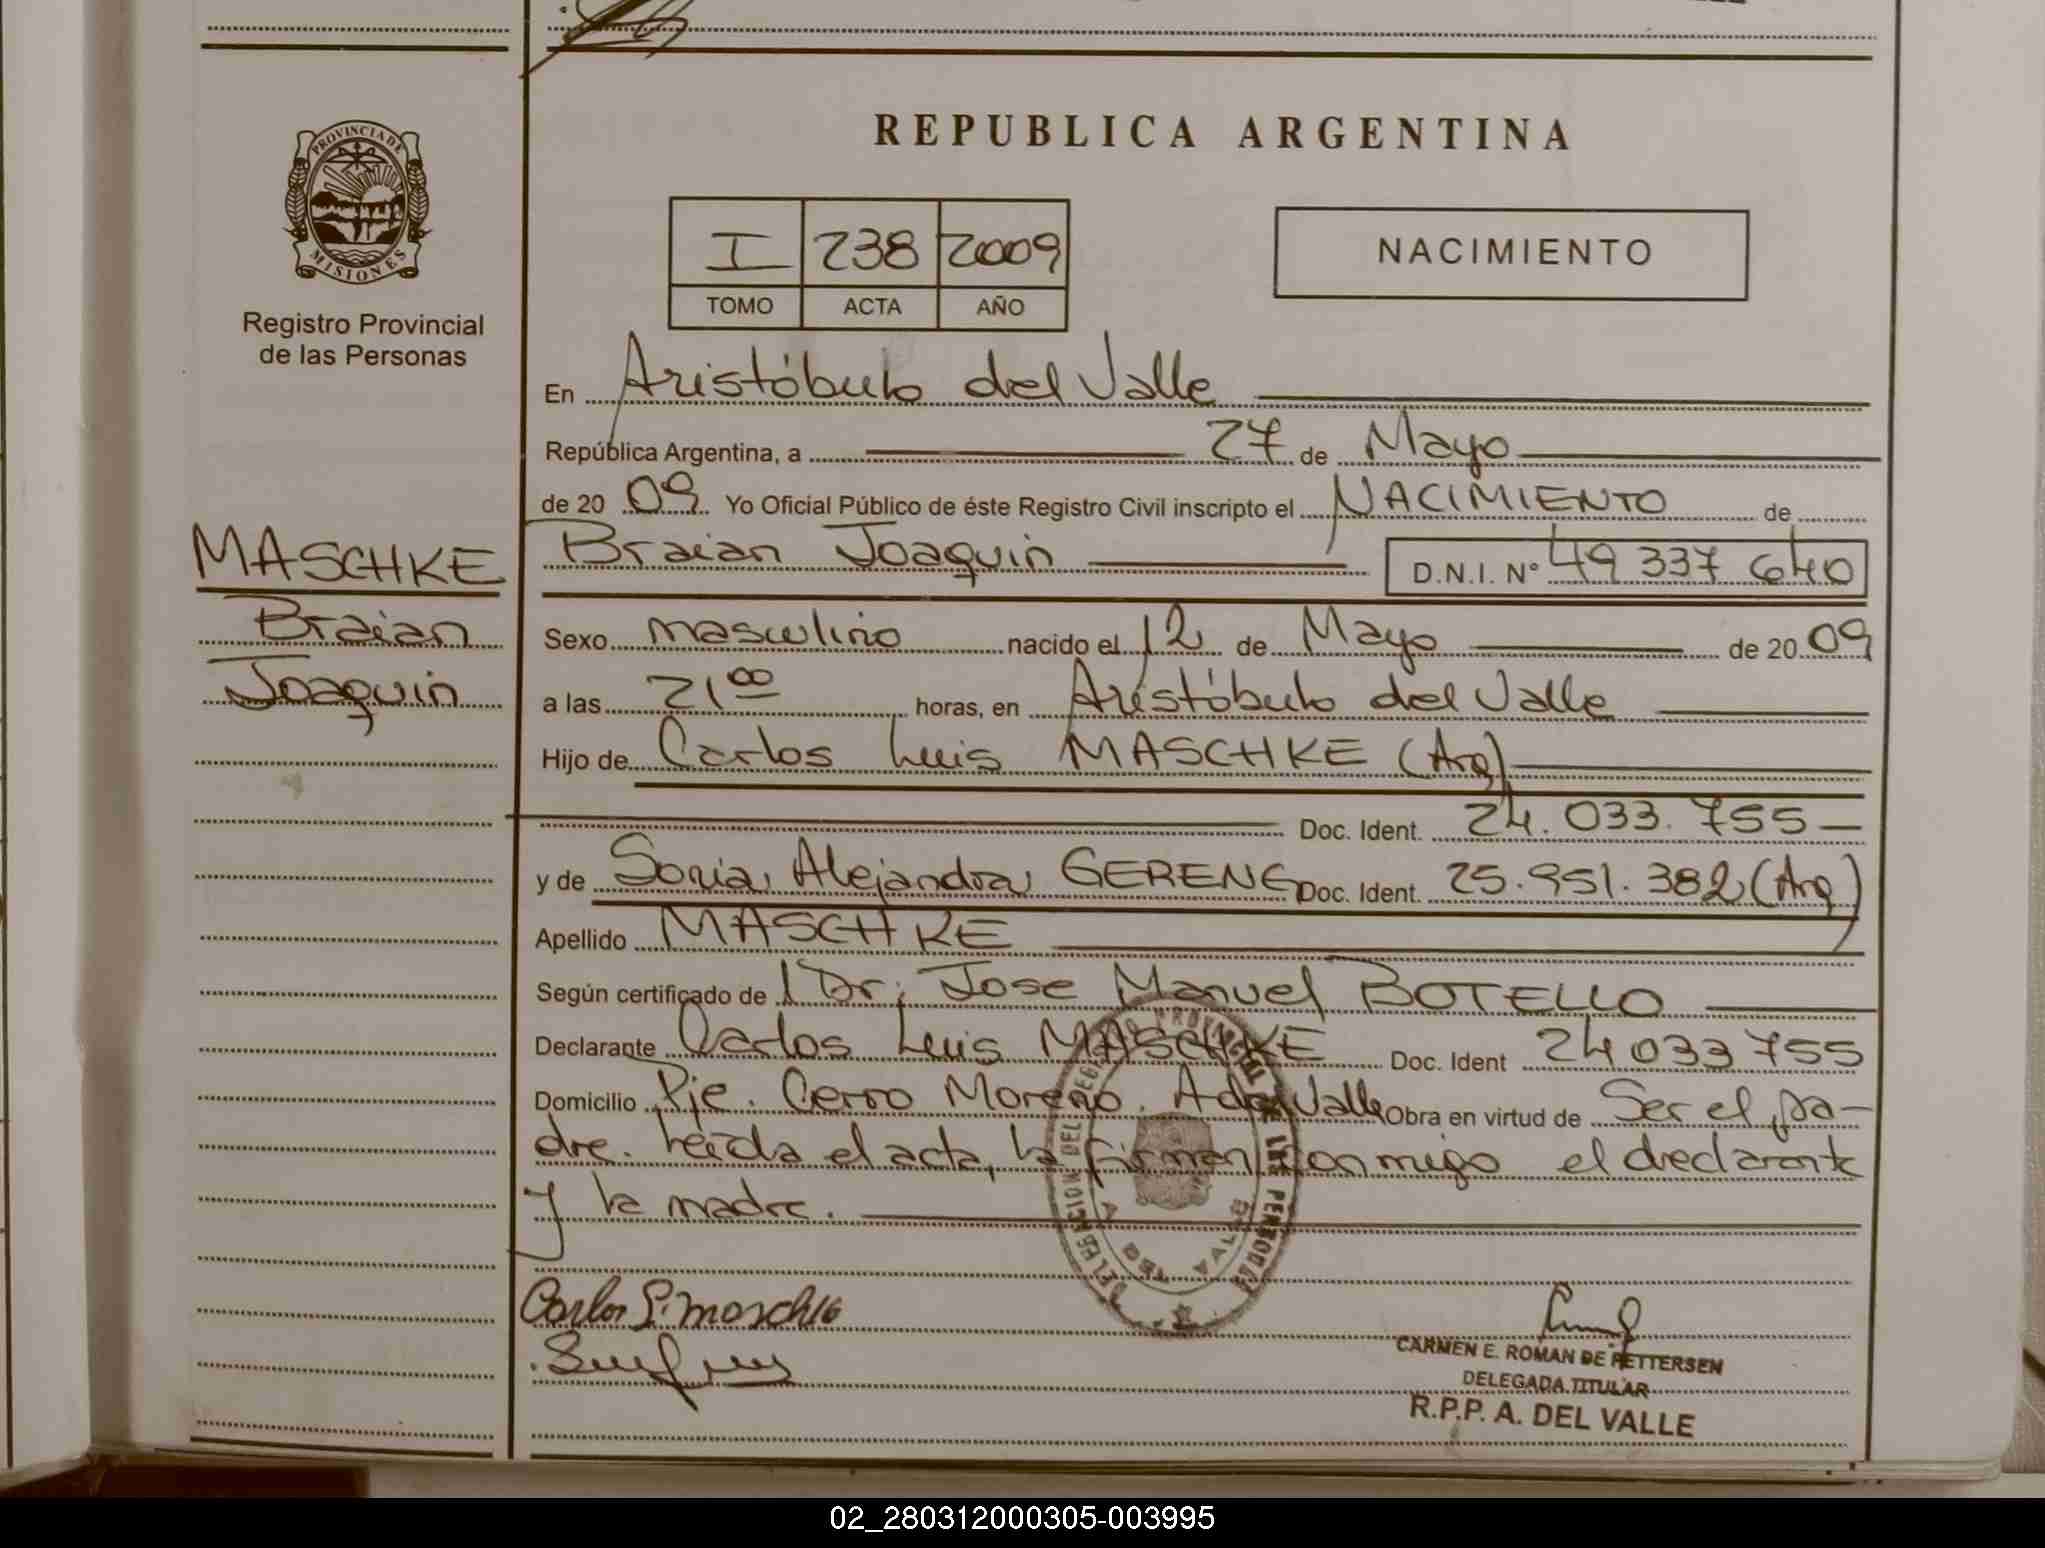 REPUBLICA ARGENTINA
PROVINCIA DE MISIONES
Registro Provincial
de las Personas
I 238 2009
TOMO ACTA AÑO
NACIMIENTO
En Aristóbulo del Valle
República Argentina, a 27 de Mayo
de 20 09 Yo Oficial Público de éste Registro Civil inscripto el NACIMIENTO de
MASCHKE
Braian
Joaquin
Braian Joaquin D.N.I. N° 49 337 640
Sexo masculino nacido el 12 de Mayo de 20 09
a las 21 00 horas, en Aristóbulo del Valle
Hijo de Carlos Luis MASCHKE (Arg)
Doc. Ident. 24.033.755
y de Sonia Alejandra GERENG Doc. Ident. 25.951.382 (Arg)
Apellido MASCHKE
Según certificado de Dr. Jose Manuel BOTELLO
Declarante Carlos Luis MASCHKE Doc. Ident 24 033 755
Domicilio Pje. Cerro Moreno. A del Valle Obra en virtud de Ser el pa-
dre. Leída el acta, la firman conmigo el declarante
y la madre.
DELEGACION DEL REGISTRO PROVINCIAL DE LAS PERSONAS
A DEL VALLE
Carlos L. Maschke
CARMEN E. ROMAN DE PETTERSEN
DELEGADA TITULAR
R.P.P. A. DEL VALLE
02_280312000305-003995